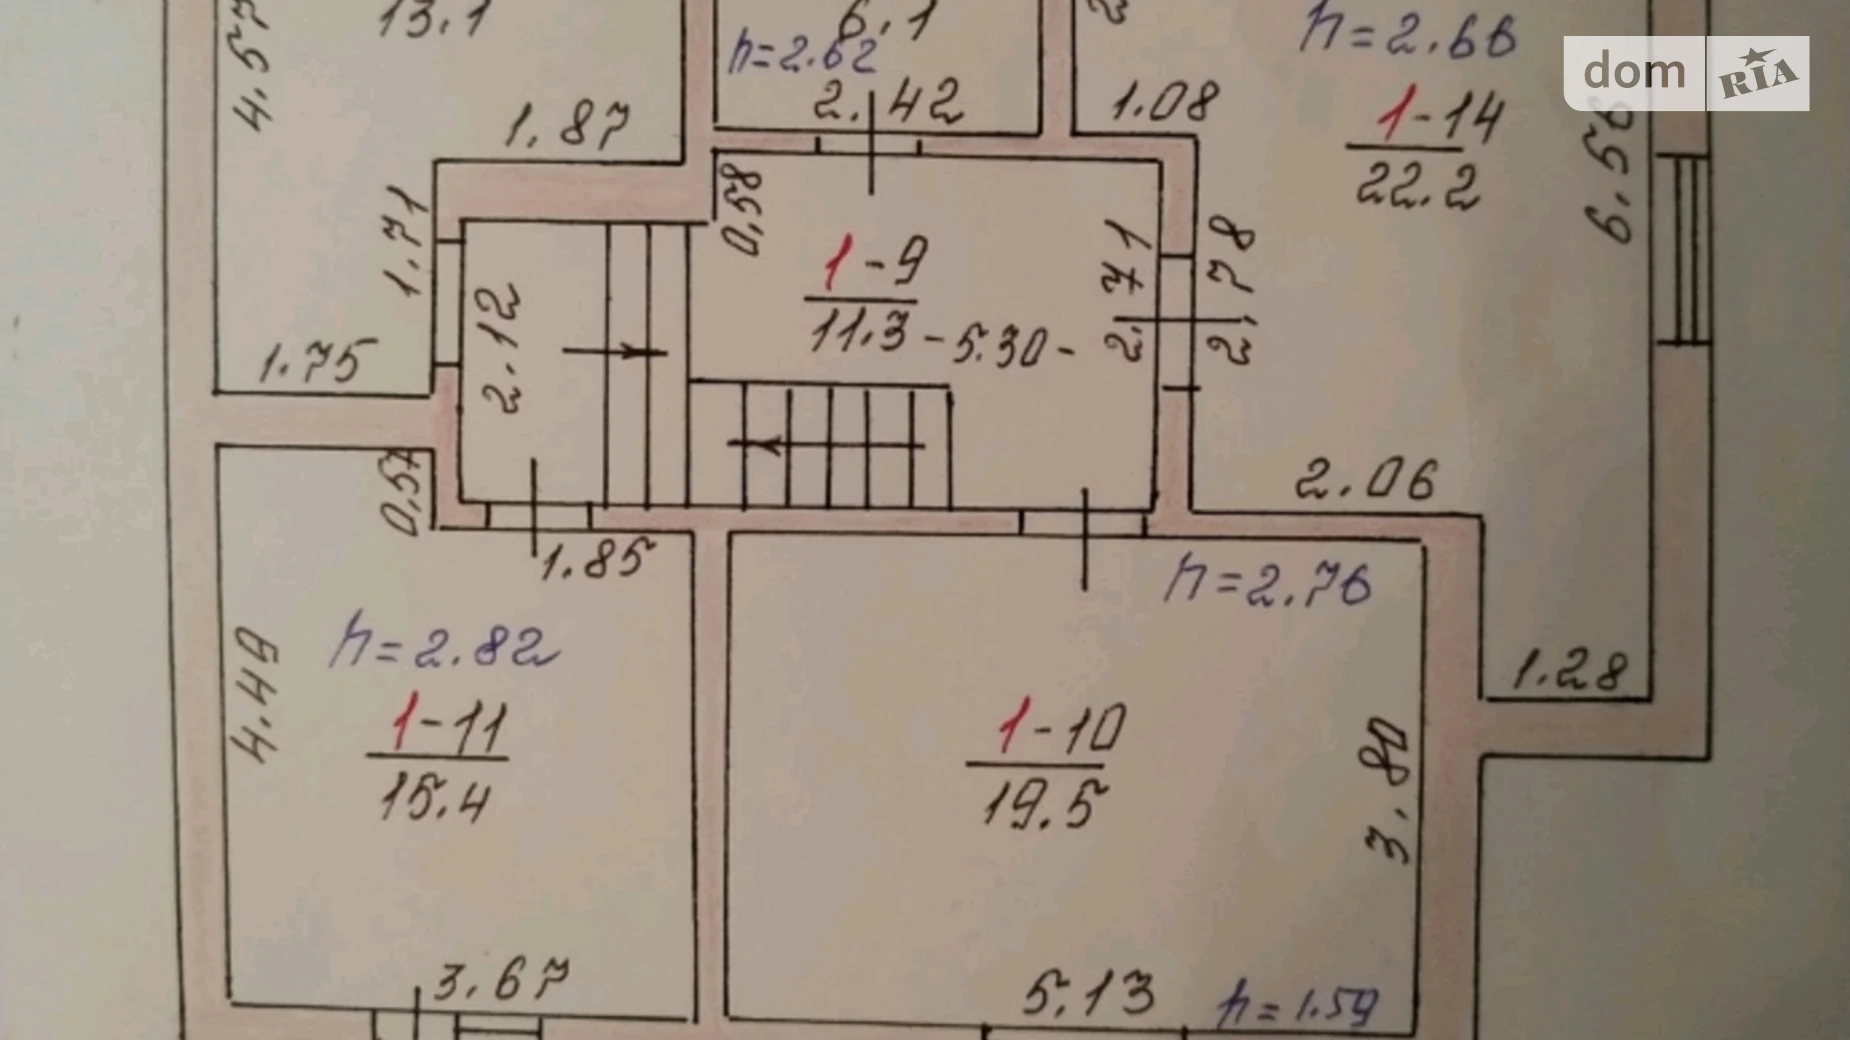 4.57
13.1
6.1
h=2.62
2.42
h=2.66
dom RIA
1.87
1.08
1-14
22.2
6.58
1.71
0,58
1-9
11.3
-5.30-
2.71
2.78
2.12
1.75
0,57
2.06
1.85
h=2.76
h=2.82
4.49
1-11
15.4
1-10
19.5
3.80
1.28
3.67
5.13
h=1.59